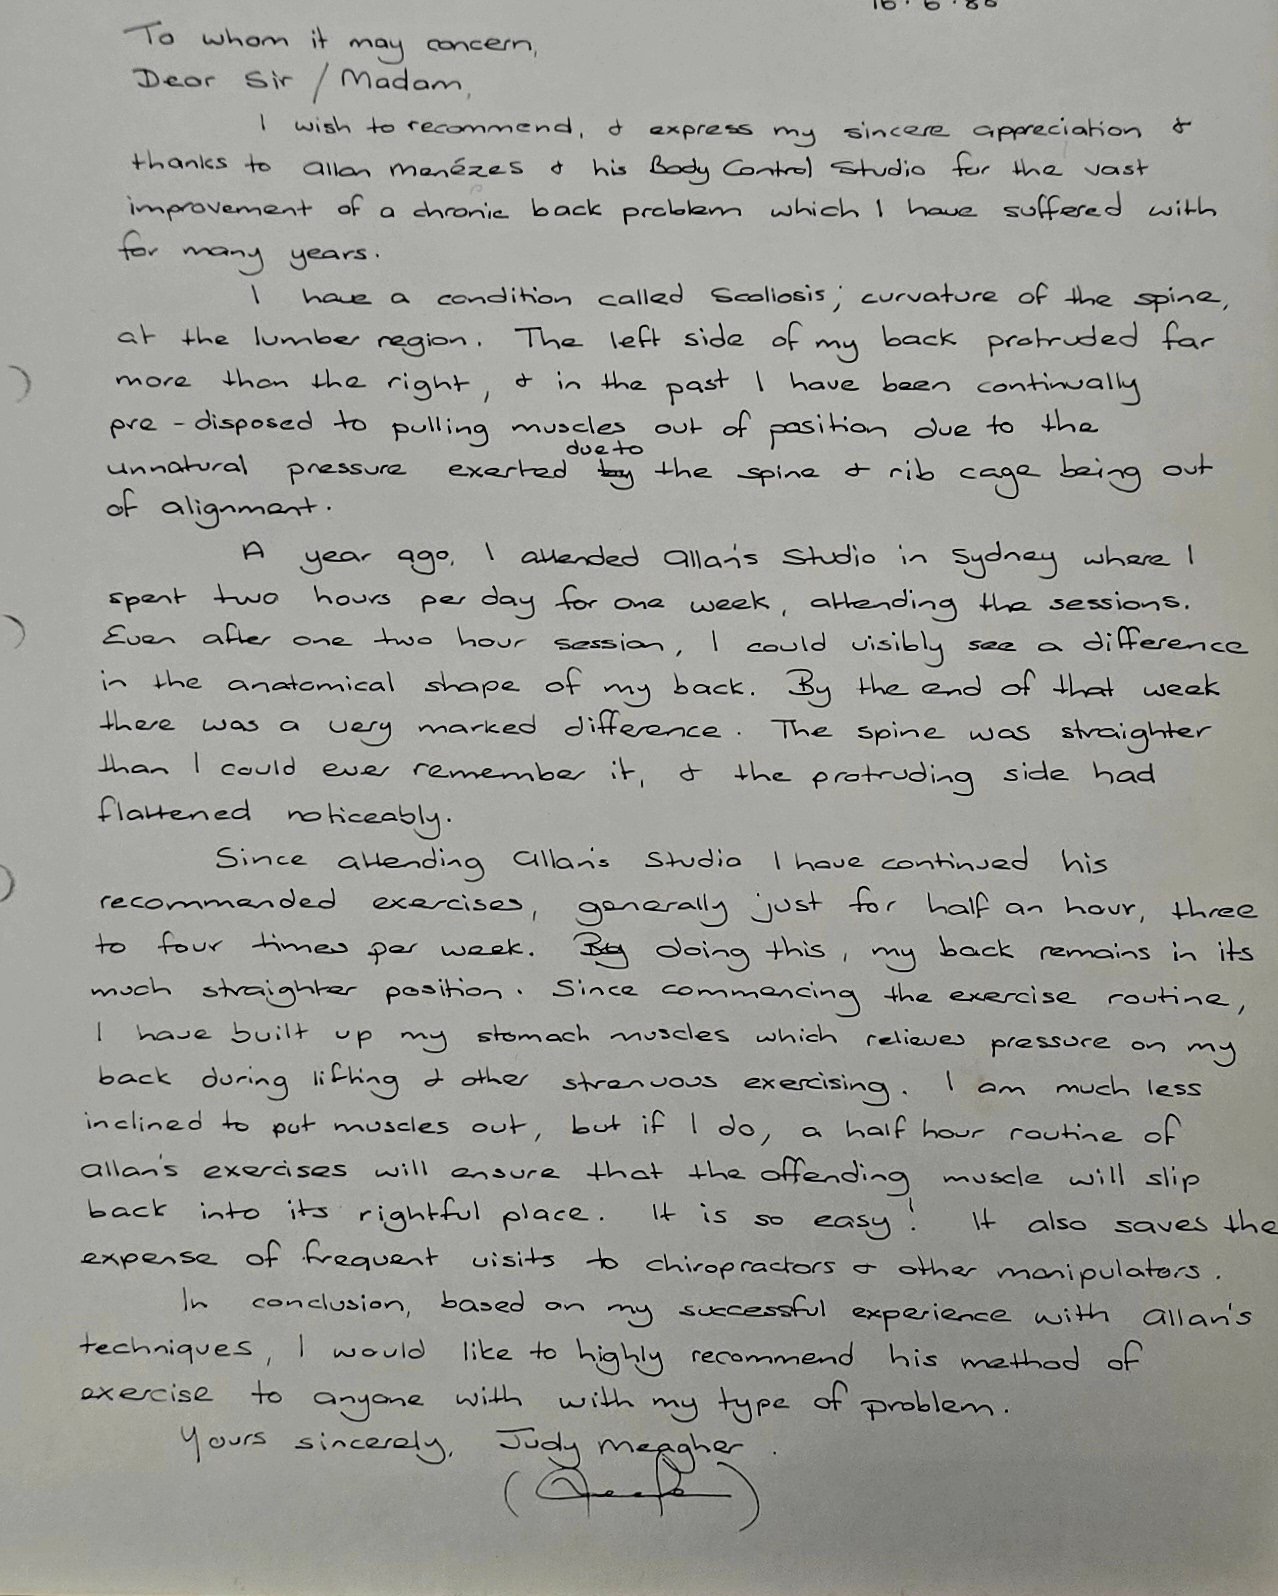 To whom it may concern,
Dear Sir / Madam,
I wish to recommend, & express my sincere appreciation &
thanks to Allan Menézes & his Body Control Studio for the vast
improvement of a chronic back problem which I have suffered with
for many years.
I have a condition called Scoliosis; curvature of the spine,
at the lumber region. The left side of my back protruded far
more than the right, & in the past I have been continually
pre-disposed to pulling muscles out of position due to the
due to
unnatural pressure exerted by the spine & rib cage being out
of alignment.
A year ago, I attended Allan's Studio in Sydney where I
spent two hours per day for one week, attending the sessions.
Even after one two hour session, I could visibly see a difference
in the anatomical shape of my back. By the end of that week
there was a very marked difference. The spine was straighter
than I could ever remember it, & the protruding side had
flattened noticeably.
Since attending Allan's Studio I have continued his
recommended exercises, generally just for half an hour, three
to four times per week. By doing this, my back remains in its
much straighter position. Since commencing the exercise routine,
I have built up my stomach muscles which relieves pressure on my
back during lifting & other strenuous exercising. I am much less
inclined to put muscles out, but if I do, a half hour routine of
Allan's exercises will ensure that the offending muscle will slip
back into its rightful place. It is so easy! It also saves the
expense of frequent visits to chiropractors & other manipulators.
In conclusion, based on my successful experience with Allan's
techniques, I would like to highly recommend his method of
exercise to anyone with with my type of problem.
Yours sincerely, Judy Meagher.